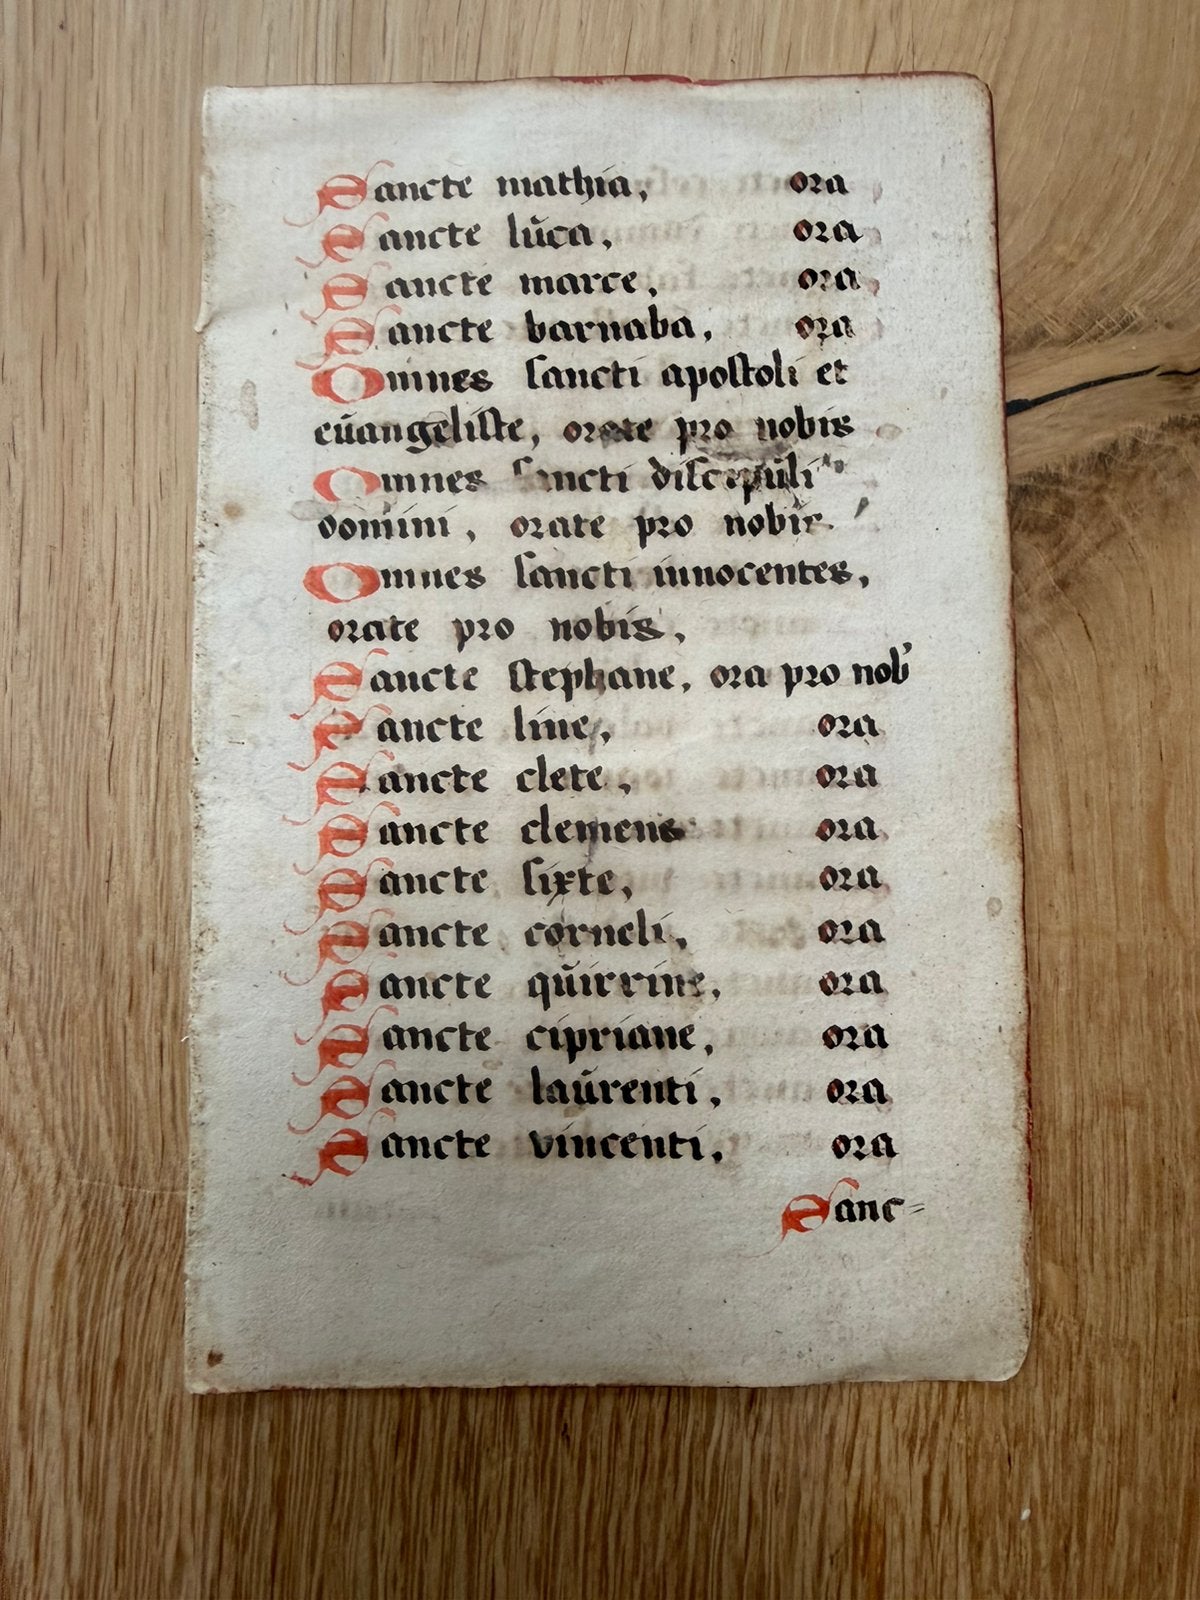 Sancte mathia, ora
Sancte lŭca, ora
Sancte marce, ora
Sancte barnaba, ora
Omnes sancti apostoli et
eŭangeliste, orate pro nobis
Omnes sancti discipŭli
domini, orate pro nobis
Omnes sancti innocentes,
orate pro nobis,
Sancte stephane, ora pro nob'
Sancte line, ora
Sancte clete, ora
Sancte clemens ora
Sancte sixte, ora
Sancte corneli, ora
Sancte qŭirrine, ora
Sancte cipriane, ora
Sancte laŭrenti, ora
Sancte vincenti, ora
Sanc=